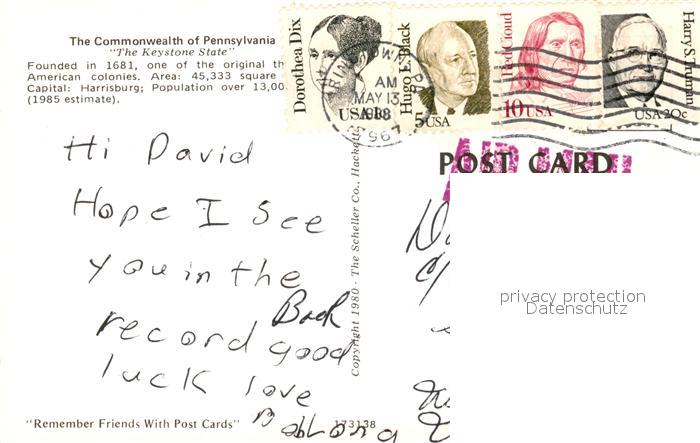 The Commonwealth of Pennsylvania
"The Keystone State"
Founded in 1681, one of the original th
American colonies. Area: 45,333 square
Capital: Harrisburg; Population over 13,00
(1985 estimate).
Dorothea Dix
USA 1c
Hugo L. Black
5 USA
Red Cloud
10 USA
Harry S. Truman
USA 20c
AM
MAY 13
1988
POST CARD
AIR MAIL
Hi David
Hope I See
you in the
record Book good
luck love
Bob Long
Copyright 1980 - The Scheller Co., Hackett
privacy protection
Datenschutz
"Remember Friends With Post Cards"
173138